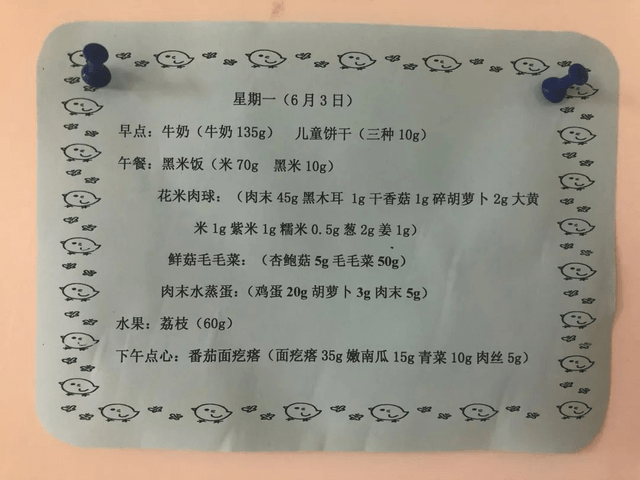 星期一（6月3日）
早点：牛奶（牛奶135g） 儿童饼干（三种10g）
午餐：黑米饭（米70g 黑米10g）
花米肉球：（肉末45g黑木耳 1g干香菇1g碎胡萝卜2g大黄
米1g紫米1g糯米0.5g葱2g姜1g）
鲜菇毛毛菜：（杏鲍菇5g毛毛菜50g）
肉末水蒸蛋：（鸡蛋20g胡萝卜3g肉末5g）
水果：荔枝（60g）
下午点心：番茄面疙瘩（面疙瘩35g嫩南瓜15g青菜10g肉丝5g）